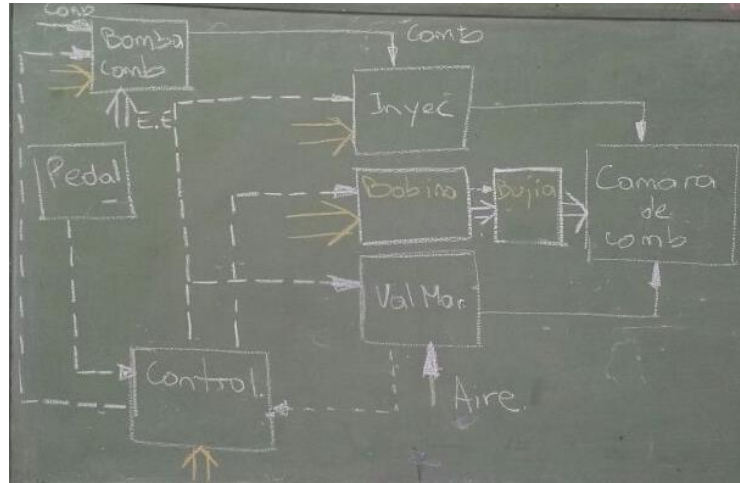 Comb
Bomba
Comb
Comb
E.E
Inyec
Pedal
Bobina
Bujia
Camara
de
Comb
Val Mar.
Control.
Aire.